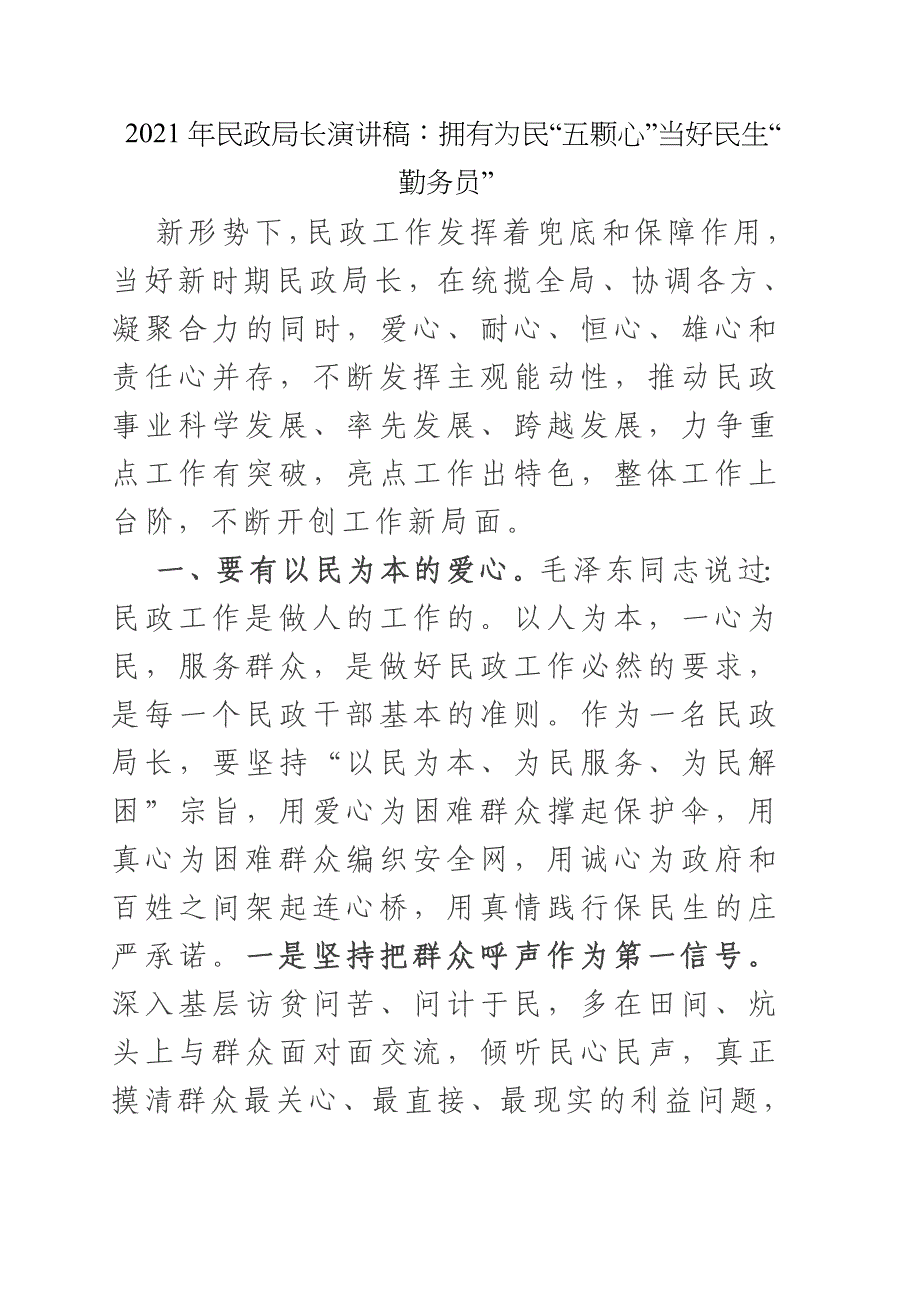 2021 年民政局长演讲稿：拥有为民“五颗心”当好民生“
勤务员”
新形势下，民政工作发挥着兜底和保障作用，
当好新时期民政局长，在统揽全局、协调各方、
凝聚合力的同时，爱心、耐心、恒心、雄心和
责任心并存，不断发挥主观能动性，推动民政
事业科学发展、率先发展、跨越发展，力争重
点工作有突破，亮点工作出特色，整体工作上
台阶，不断开创工作新局面。
一、要有以民为本的爱心。毛泽东同志说过：
民政工作是做人的工作的。以人为本，一心为
民，服务群众，是做好民政工作必然的要求，
是每一个民政干部基本的准则。作为一名民政
局长，要坚持“以民为本、为民服务、为民解
困”宗旨，用爱心为困难群众撑起保护伞，用
真心为困难群众编织安全网，用诚心为政府和
百姓之间架起连心桥，用真情践行保民生的庄
严承诺。一是坚持把群众呼声作为第一信号。
深入基层访贫问苦、问计于民，多在田间、炕
头上与群众面对面交流，倾听民心民声，真正
摸清群众最关心、最直接、最现实的利益问题，